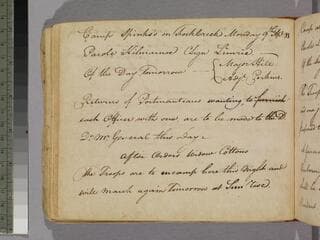 Camp Spinks's in
Monday 9th
Parole Kilmainoe C Sign Limric
Of the Day Tomorrow { Major Hill
{ Adjt. Perkins.
Returns of Portmanteaus wanting to furnish
each Officer with one are to be made to the D
Dr Mr General this day.
After Orders Widow Cottons
The Troops are to encamp here this Night and
will march again Tomorrow at Sun rise.